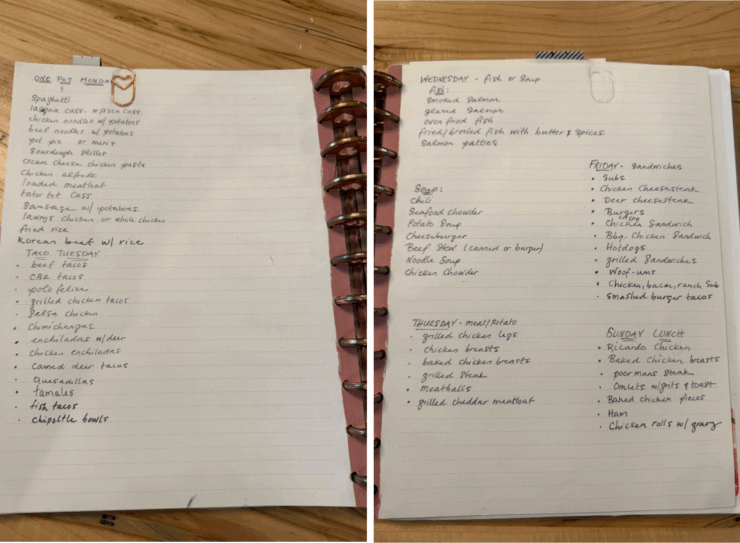 ONE POT MONDAY
Spaghetti
lasagna cass. or pizza cass.
chicken noodles w/ potatoes
beef noodles w/ potatoes
pot pie or mini's
Sourdough Skillet
cream cheese chicken pasta
Chicken alfredo
loaded meatloaf
tator tot cass
Sausage w/ potatoes
chicken or whole chicken
fried rice
Korean beef w/ rice
TACO TUESDAY
• beef tacos
• CBR tacos
• grilled chicken tacos
• Salsa chicken
• Chimichangas
• enchiladas w/ deer
• chicken enchiladas
• canned deer tacos
• quesadillas
• tamales
• fish tacos
• chipoltle bowls
WEDNESDAY - Fish or Soup
Fish:
Smoked Salmon
glazed Salmon
oven fried fish
fried/broiled fish with butter & spices
Salmon patties
Soup:
Chili
Seafood chowder
Potato Soup
Cheeseburger
Beef Stew (canned or burger)
Noodle Soup
Chicken Chowder
THURSDAY - meat/potato
• grilled chicken legs
• chicken breasts
• baked chicken breasts
• grilled steak
• meatballs
• grilled cheddar meatloaf
FRIDAY - Sandwiches
• Subs
• Chicken Cheesesteak
• Deer cheesesteak
• Burgers
• Chicken Sandwich
• Bbq. Chicken Sandwich
• Hotdogs
• grilled Sandwiches
• Woof-ums
• Chicken, bacon, ranch Sub
• Smashed burger tacos
SUNDAY LUNCH
• Ricardo Chicken
• Baked Chicken breasts
• poor mans Steak
• Omlets w/grits & toast
• Baked chicken pieces
• Ham
• Chicken rolls w/ gravy